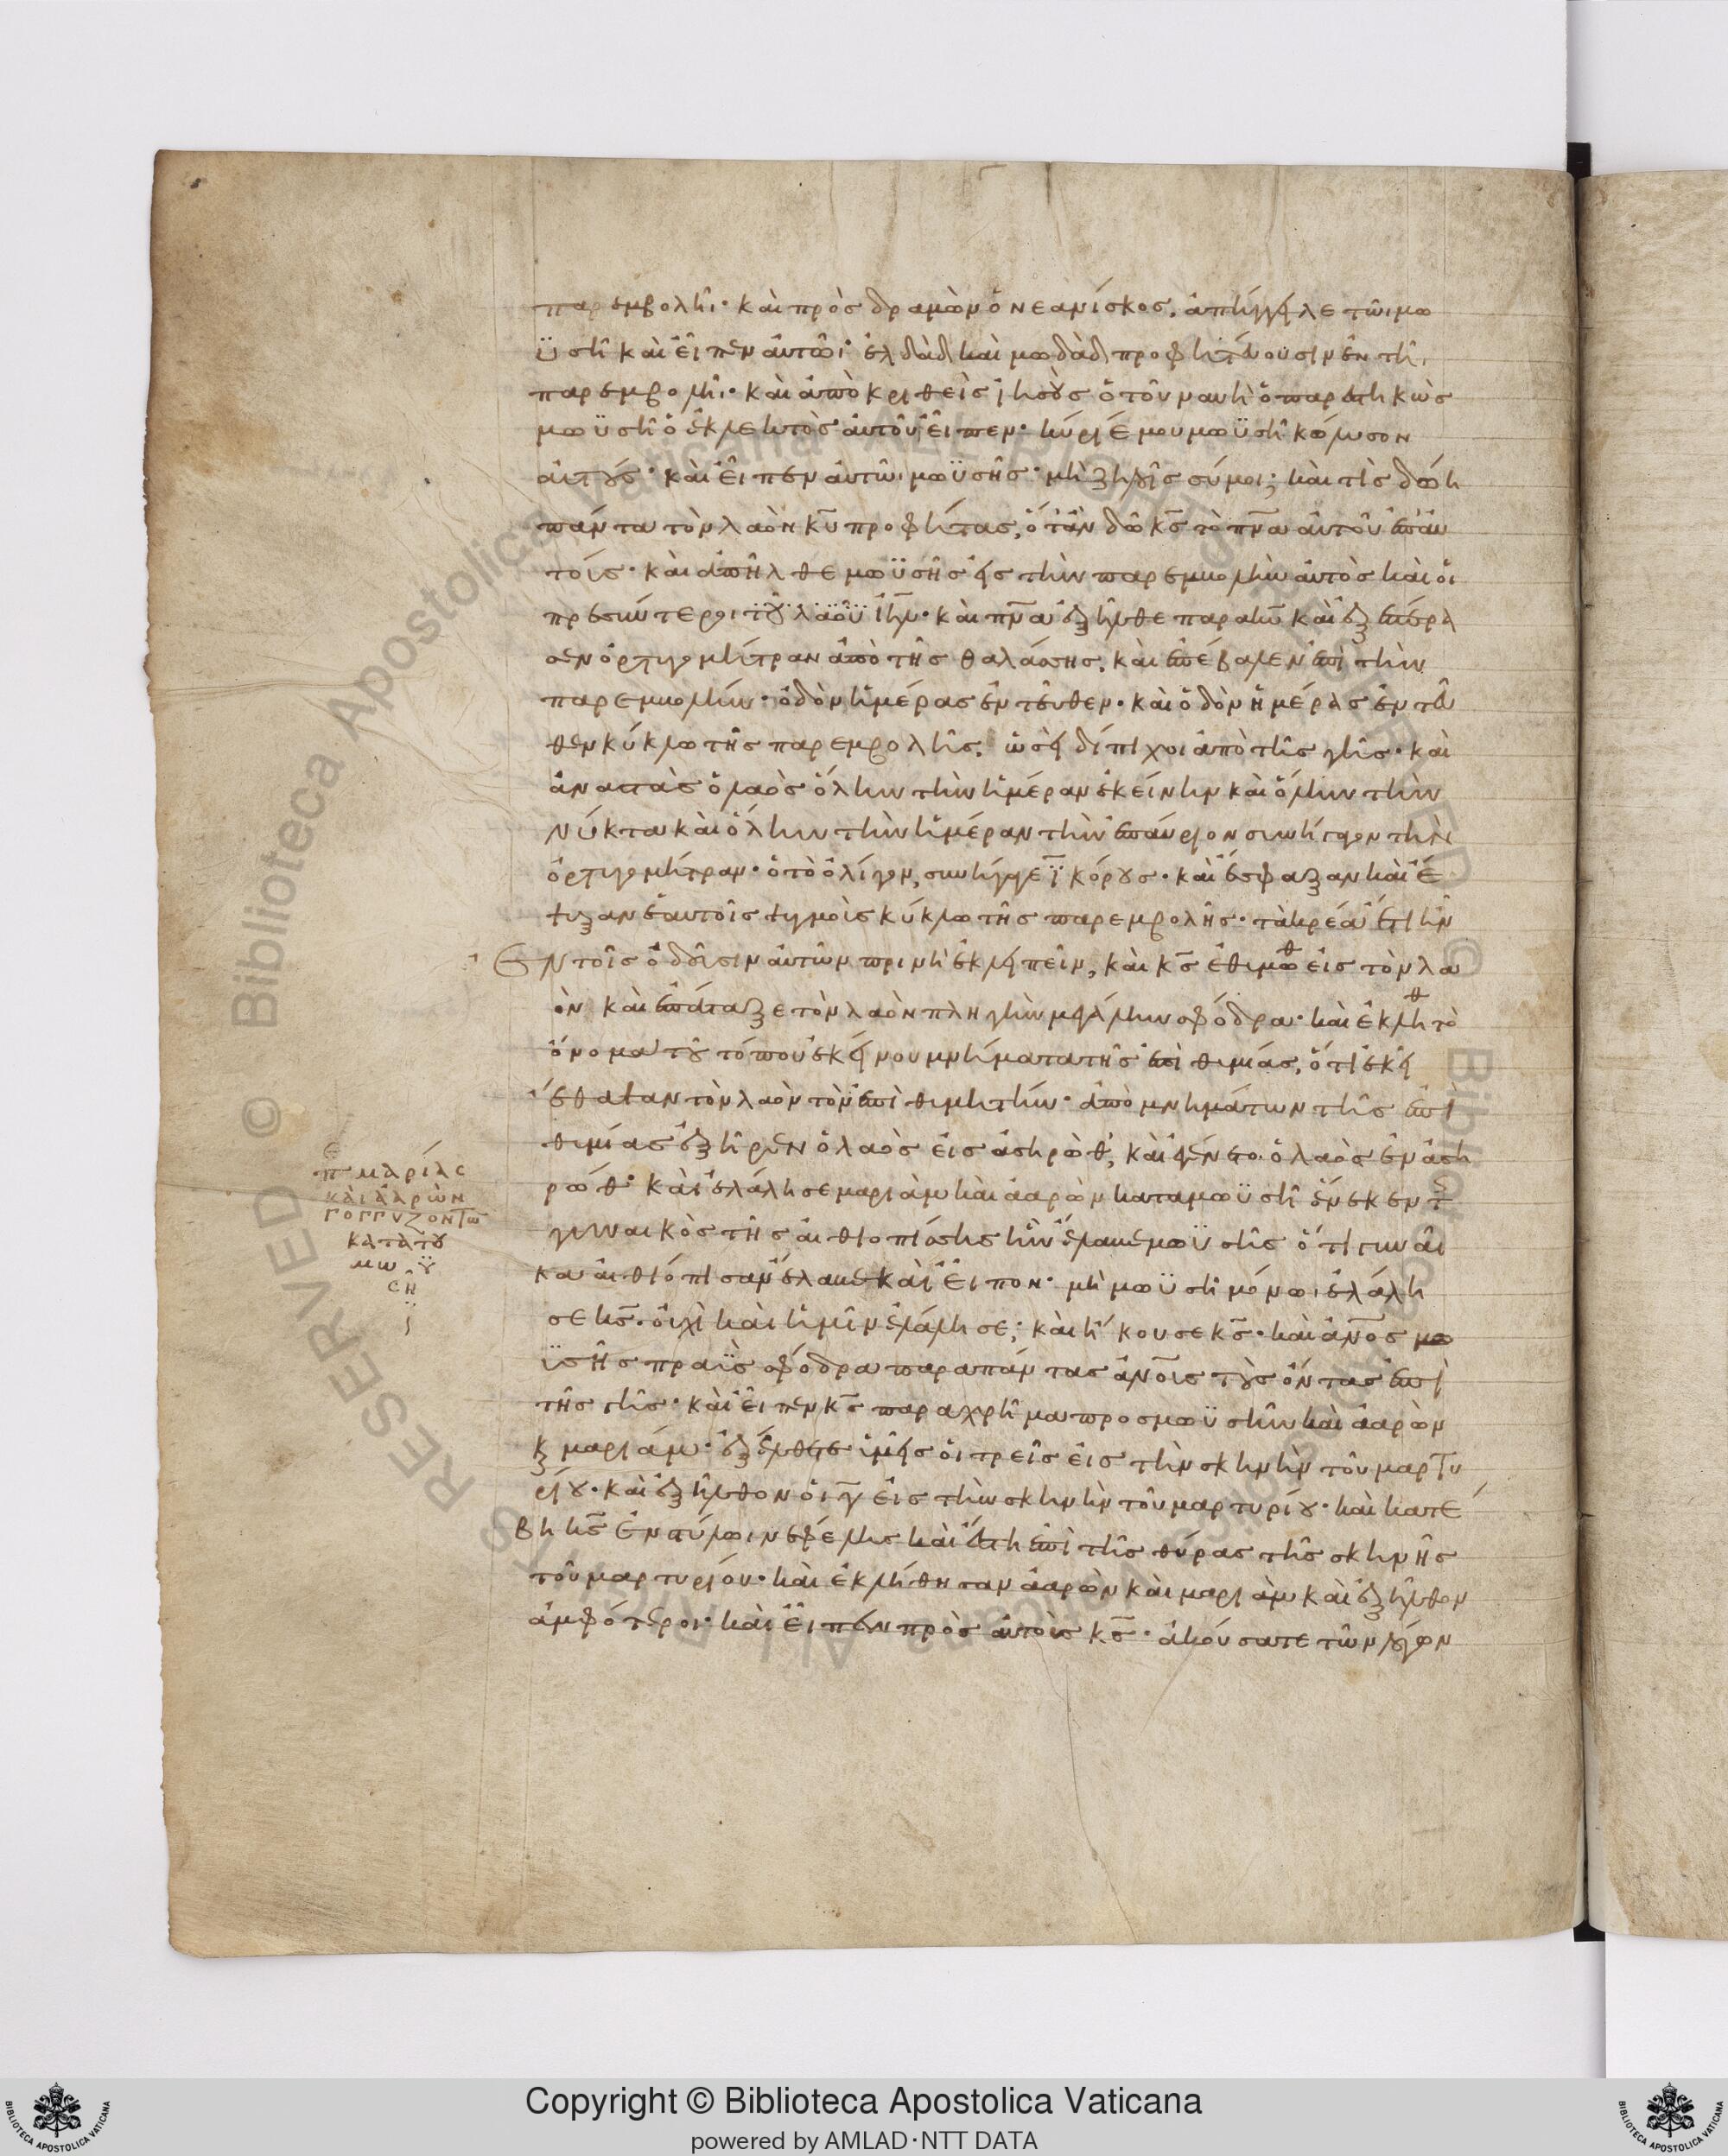 παρεμβολῆι· καὶ προσδραμὼν ὁ νεανίσκος, ἀπήγγειλε τῶι μω
ϋσῆ καὶ εἶπεν αὐτῶι· ἐλδὰδ καὶ μωδὰδ προφητεύουσιν ἐν τῆι
παρεμβολῆι· καὶ ἀποκριθεὶς ἰησοῦς ὁ τοῦ ναυὴ ὁ παρεστηκὼς
μωϋσῆ ὁ ἐκλεκτὸς αὐτοῦ εἶπεν· κύριέ μου μωϋσῆ κώλυσον
αὐτούς· καὶ εἶπεν αὐτῶι μωϋσῆς· μὴ ζηλοῖς σύ μοι; καὶ τίς δώη
πάντα τὸν λαὸν κυ προφήτας, ὅταν δῶ κς τὸ πνα αὐτοῦ ἐπ αὐ
τοίς· καὶ ἀπῆλθε μωϋσῆς εἰς τὴν παρεμβολὴν αὐτὸς καὶ οἱ
πρεσβύτεροι τοῦ λαοῦ ιηλ· καὶ πνα ἐξῆλθε παρα κυ καὶ ἐξεπέρα
σεν ὀρτυγομήτραν ἀπὸ τῆς θαλάσσης, καὶ ἐπέβαλεν ἐπὶ τὴν
παρεμβολήν· ὁδὸν ἡμέρας ἐντεῦθεν· καὶ ὁδὸν ἡμέρας ἐντεῦ
θεν κύκλω τῆς παρεμβολῆς, ὡσεὶ δίπιχοι ἀπὸ τῆς γῆς· καὶ
ἀναστὰς ὁ λαὸς ὅλην τὴν ἡμέραν ἐκείνην καὶ ὅλην τὴν
νύκτα καὶ ὅλην τὴν ἡμέραν τὴν ἐπαύριον συνήγαγον τὴν
ὀρτυγομήτραν· ὁ τὸ ὀλίγον, συνήγαγε ϊ κόρους· καὶ ἔσφαξαν καὶ ἔ
ψυξαν ἑαυτοῖς ψυγμοὶς κύκλω τῆς παρεμβολῆς· τὰ κρέα ἔτι ἦν
ἐν τοῖς ὀδοῦσιν αὐτῶν πρινὴ ἐκλείπειν, καὶ κς ἐθιμωθ εἰς τὸν λα
ὸν καὶ ἐπάταξε τὸν λαὸν πληγὴν μεγάλην σφόδρα· καὶ ἐκληθ τὸ
ὄνομα τοῦ τόπου ἐκείνου μνήματα τῆς ἐπιθιμίας, ὅτι ἐκεῖ
ἔθαψαν τὸν λαὸν τὸν ἐπιθιμητήν· ἀπὸ μνημάτων τῆς ἐπι
θιμίας ἐξῆρεν ὁ λαὸς εἰς ἀσηρὼθ, καὶ ἐγένετο ὁ λαὸς ἐν ἀση
ρώθ· καὶ ἐλάλησε μαριὰμ καὶ ἀαρὼν κατα μωϋσῆ ἕνεκεν τς
γυναικὸς τῆς αἰθιοπίσσης ἣν ἔλαβε μωϋσῆς ὅτι γυναῖ
κα αἰθιόπισαν ἔλαβε καὶ εἶπον· μὴ μωϋσῆ μόνωι ἐλάλη
σε κς. οἰχὶ καὶ ἡμῖν ἐλάλησε; καὶ ἤκουσε κς· καὶ ἀνος μω
ϋσῆς πραῢς σφόδρα παρα πάντας ἀνοις τοὺς ὄντας ἐπὶ
τῆς γῆς· καὶ εἶπεν κς παραχρῆμα προς μωϋσῆν καὶ ἀαρὼν
κ μαριάμ· ἐξέλθετε ὑμεῖς οἱ τρεῖς εἰς τὴν σκηνὴν τοῦ μαρτυ
ρίου· καὶ ἐξῆλθον οἱ γ εἰς τὴν σκηνὴν τοῦ μαρτυρίου· καὶ κατέ
βη κς ἐν στύλωι νεφέλης καὶ ἔστη ἐπὶ τῆς θύρας τῆς σκηνῆς
τοῦ μαρτυρίου· καὶ ἐκλήθησαν ἀαρὼν καὶ μαριὰμ καὶ ἐξῆλθον
ἀμφότεροι· καὶ εἶπεν πρὸς αὐτοὶς κς· ἀκούσατε τῶν λόγων
πε μαρίας
καὶ ἀαρὼν
γογγυζοντω
κατὰ τοῦ
μωϋ
σῆ
Copyright © Biblioteca Apostolica Vaticana
powered by AMLAD·NTT DATA